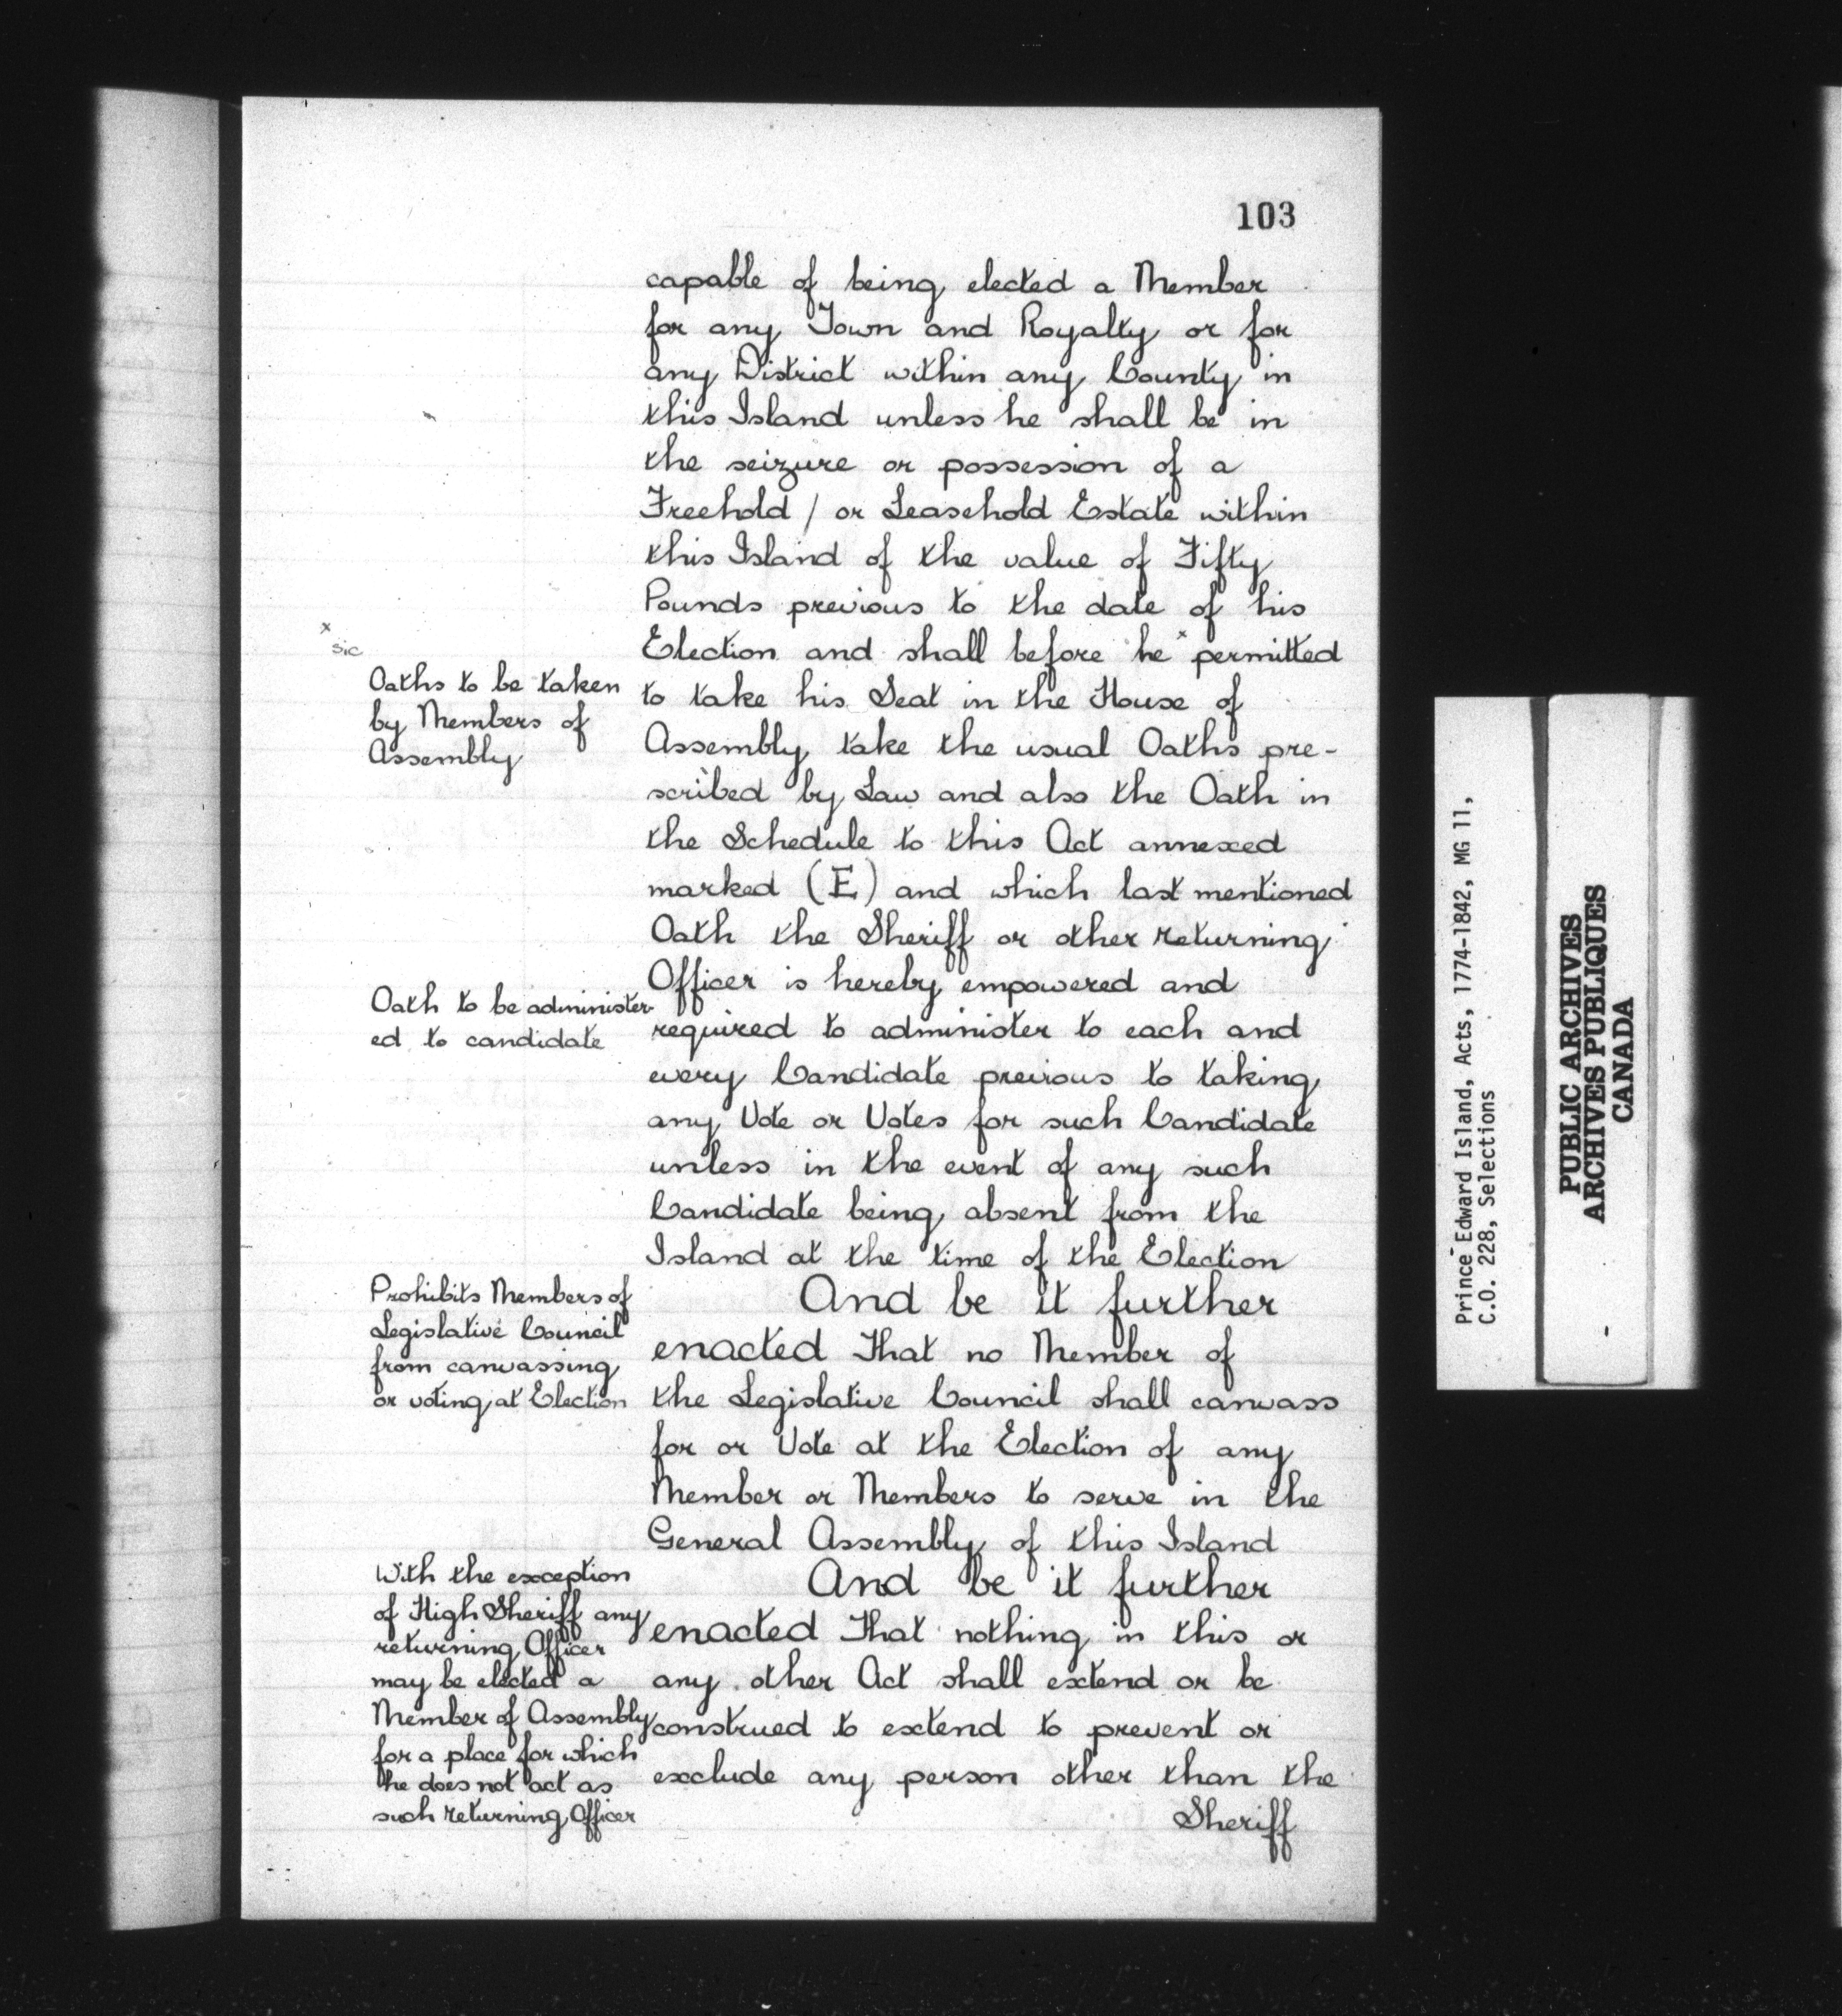 103
capable of being elected a Member
for any Town and Royalty or for
any District within any County in
this Island unless he shall be in
the seizure or possession of a
Freehold / or Leasehold Estate within
this Island of the value of Fifty
Pounds previous to the date of his
x
sic
Election and shall before he x permitted
Oaths to be taken
by Members of
Assembly
to take his Seat in the House of
Assembly take the usual Oaths pre-
scribed by Law and also the Oath in
the Schedule to this Act annexed
marked (E) and which last mentioned
Oath the Sheriff or other returning
Officer is hereby empowered and
Oath to be administer-
ed to candidate
required to administer to each and
every Candidate previous to taking
any Vote or Votes for such Candidate
unless in the event of any such
Candidate being absent from the
Island at the time of the Election
Prohibits Members of
Legislative Council
from canvassing
or voting at Election
And be it further
enacted That no Member of
the Legislative Council shall canvass
for or Vote at the Election of any
Member or Members to serve in the
General Assembly of this Island
With the exception
of High Sheriff any
returning Officer
may be elected a
Member of Assembly
for a place for which
he does not act as
such returning Officer
And be it further
enacted That nothing in this or
any other Act shall extend or be
construed to extend to prevent or
exclude any person other than the
Sheriff
Prince Edward Island, Acts, 1774-1842, MG 11,
C.O. 228, Selections
PUBLIC ARCHIVES
ARCHIVES PUBLIQUES
CANADA